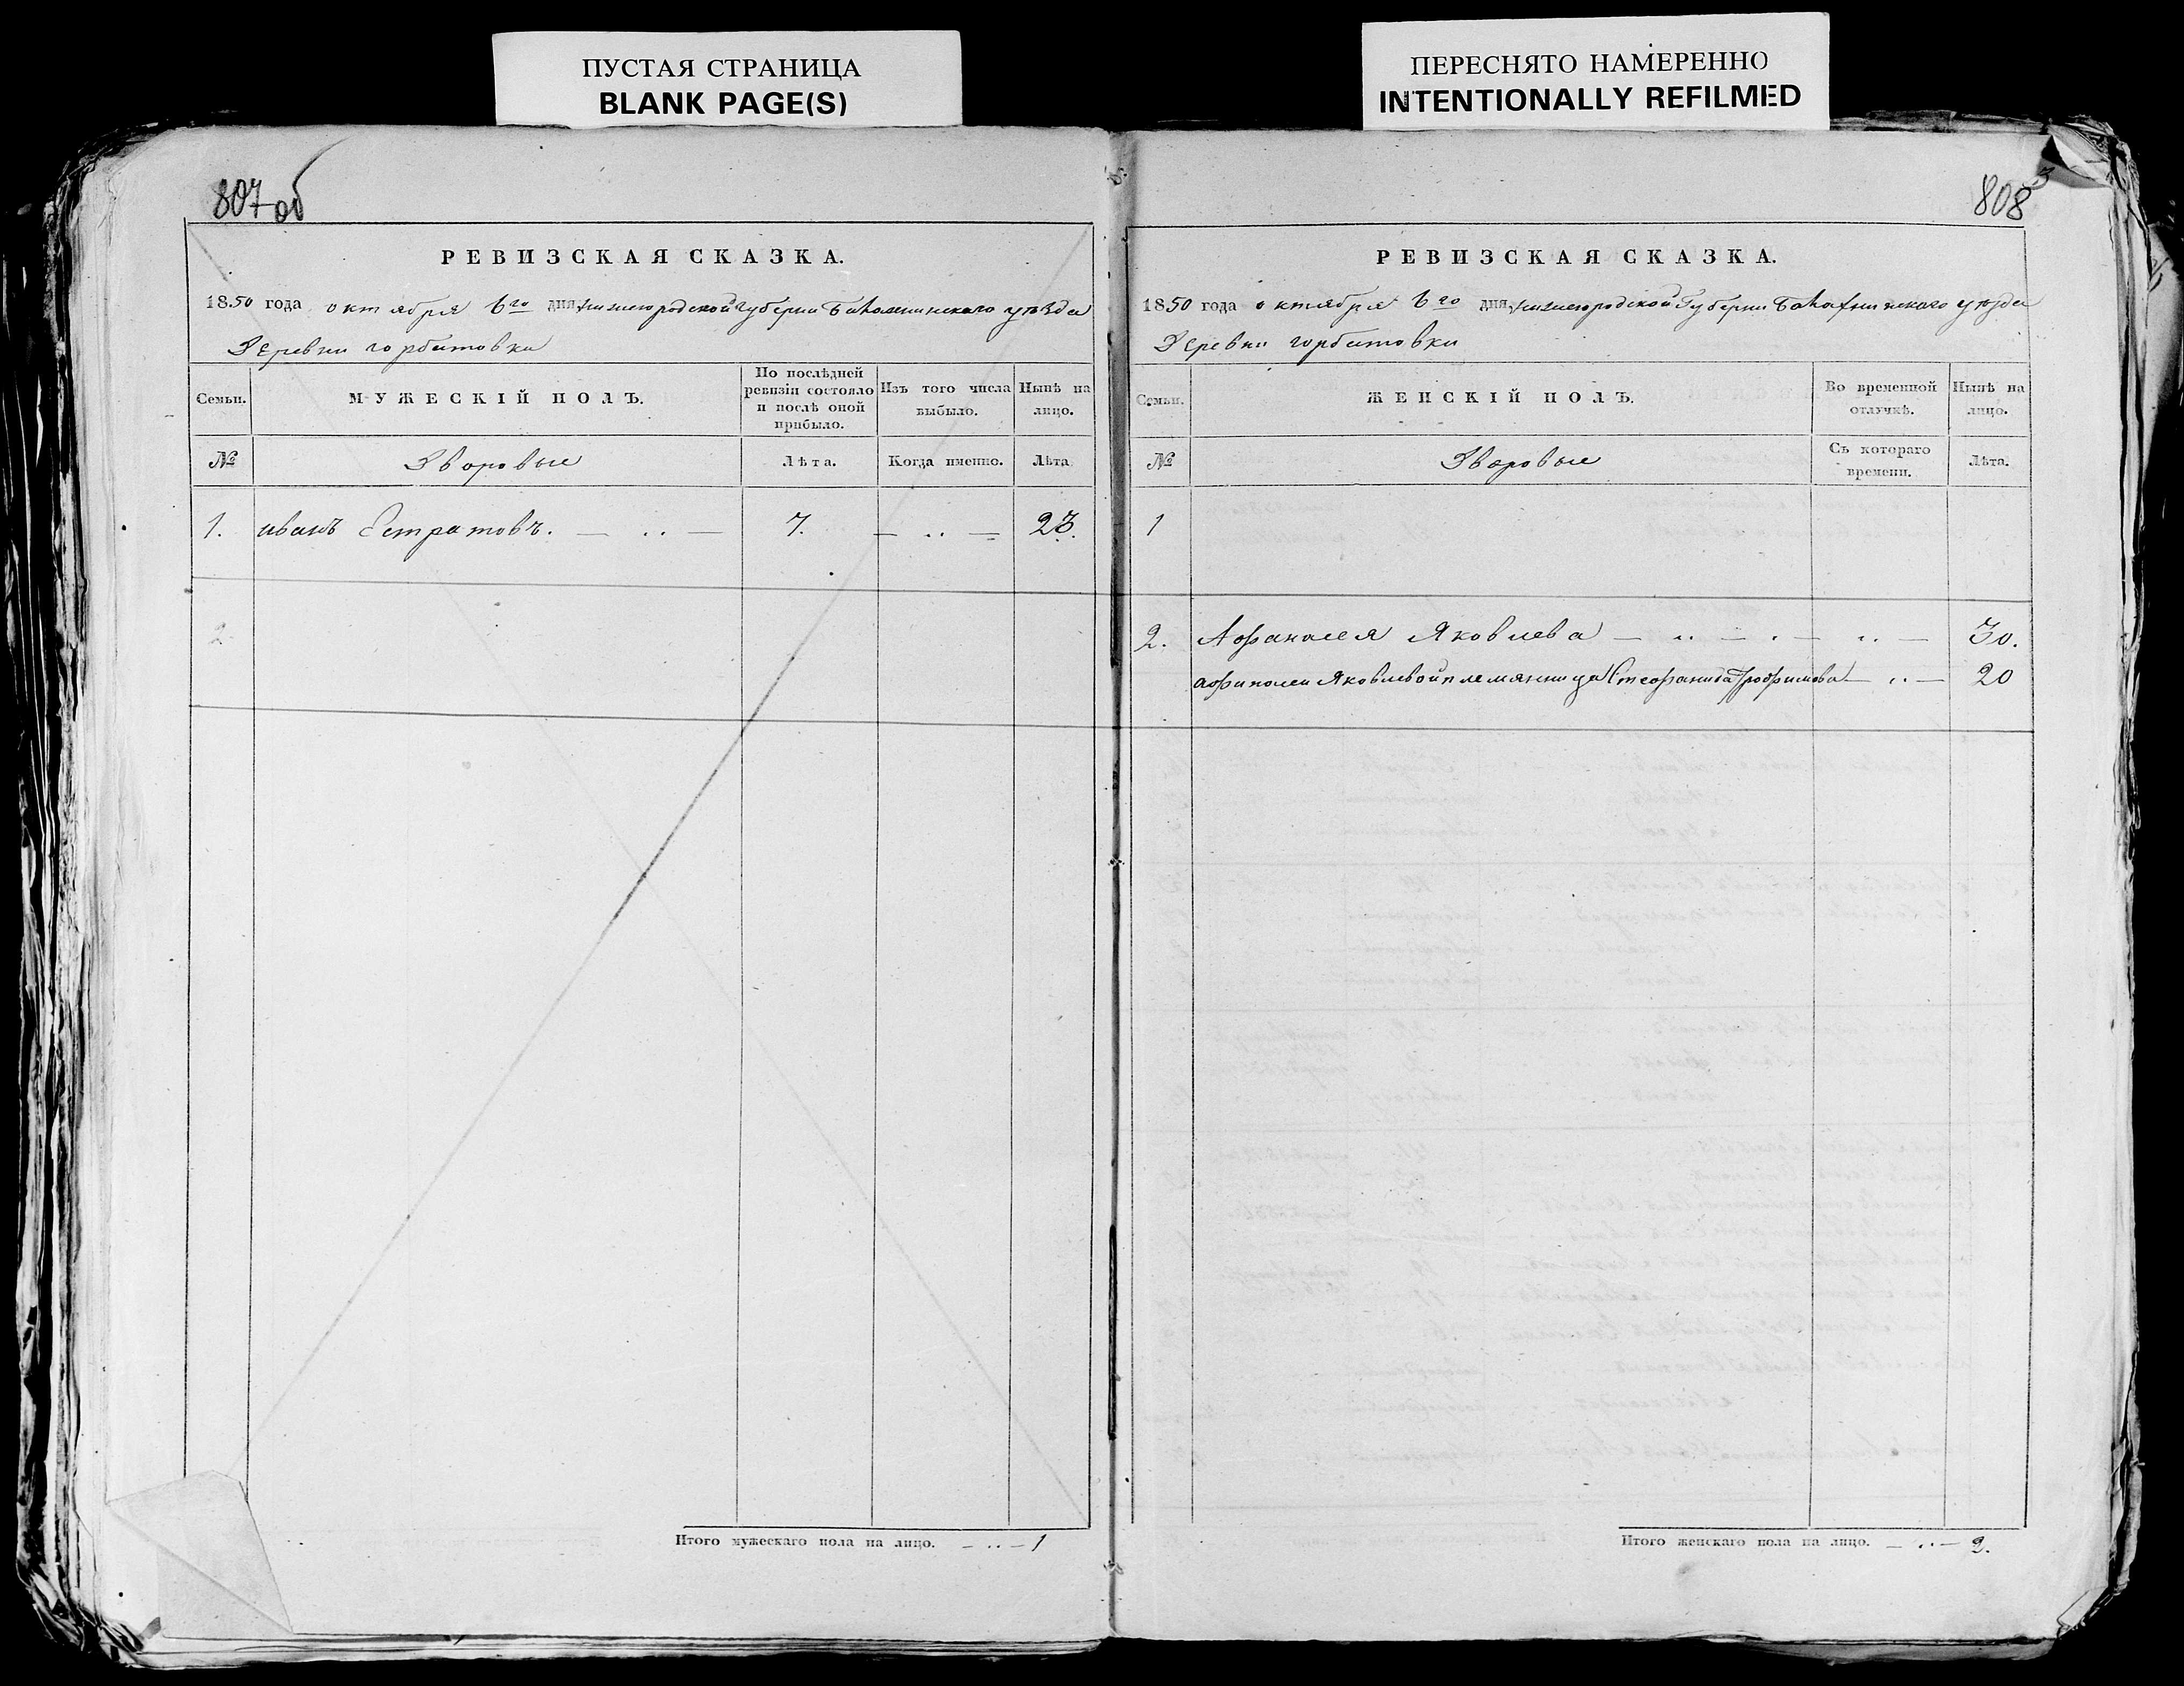 ПУСТАЯ СТРАНИЦА
BLANK PAGE(S)
ПЕРЕСНЯТО НАМЕРЕННО
INTENTIONALLY REFILMED
807 об
РЕВИЗСКАЯ СКАЗКА.
1850 года октября 6го дня нижегородской губерни Балахнинскаго уѣзда
Деревни горбатовки
Семьи.
МУЖЕСКІЙ ПОЛЪ.
По послѣдней ревизіи состояло и послѣ оной прибыло.
Изъ того числа выбыло.
Нынѣ на лицо.
№
Дворовые
Лѣта.
Когда именно.
Лѣта
1. иванъ Естратовъ. — .. — 7. — .. — 23.
2.
Итого мужескаго пола на лицо. — .. — 1
808
3
РЕВИЗСКАЯ СКАЗКА.
1850 года октября 6го дня нижегородской Губерни Балахнинскаго уѣзда
Деревни горбатовки
Семьи.
ЖЕНСКІЙ ПОЛЪ.
Во временной отлучкѣ.
Нынѣ на лицо.
№
Дворовые
Съ котораго времени.
Лѣта.
1
2. Афанасея Яковлева — .. — . — .. — 30.
Яковлевой племянница Стефанида Трофимова — .. — 20
Итого женскаго пола на лицо. — .. — 2.